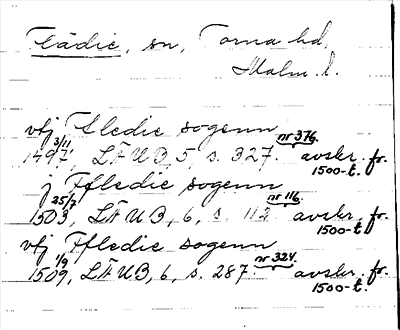 Flädie, sn, Torna hd,
Malm. l.
vtj Fledie sogenn
3/11 1497, LÄUB, 5, s. 327. nr 376. avskr. fr. 1500-t.
j Ffledie sogenn
25/7 1503, LÄUB, 6, s. 112 nr 116. avskr. fr. 1500-t.
vtj Ffledie sogenn
1/9 1509, LÄUB, 6, s. 287 nr 324. avskr. fr. 1500-t.